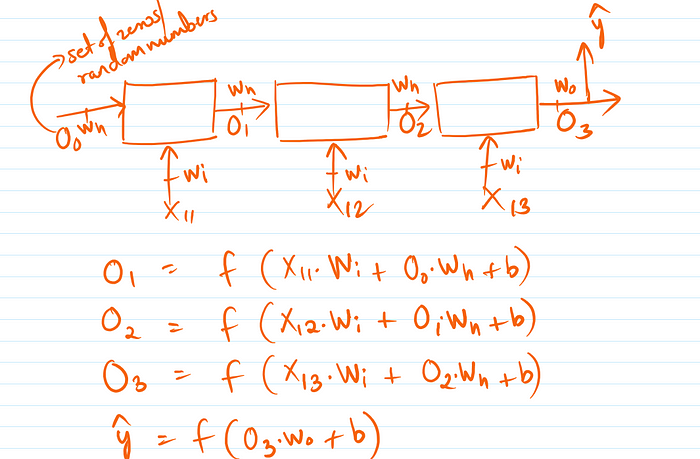 set of zeros/
random numbers
ŷ
Wh Wh Wo
O₀ Wh O₁ O₂ O₃
Wi Wi Wi
X₁₁ X₁₂ X₁₃
O₁ = f (X₁₁. Wi + O₀.Wh + b)
O₂ = f (X₁₂.Wi + O₁Wh + b)
O₃ = f (X₁₃.Wi + O₂.Wh + b)
ŷ = f(O₃.Wo + b)